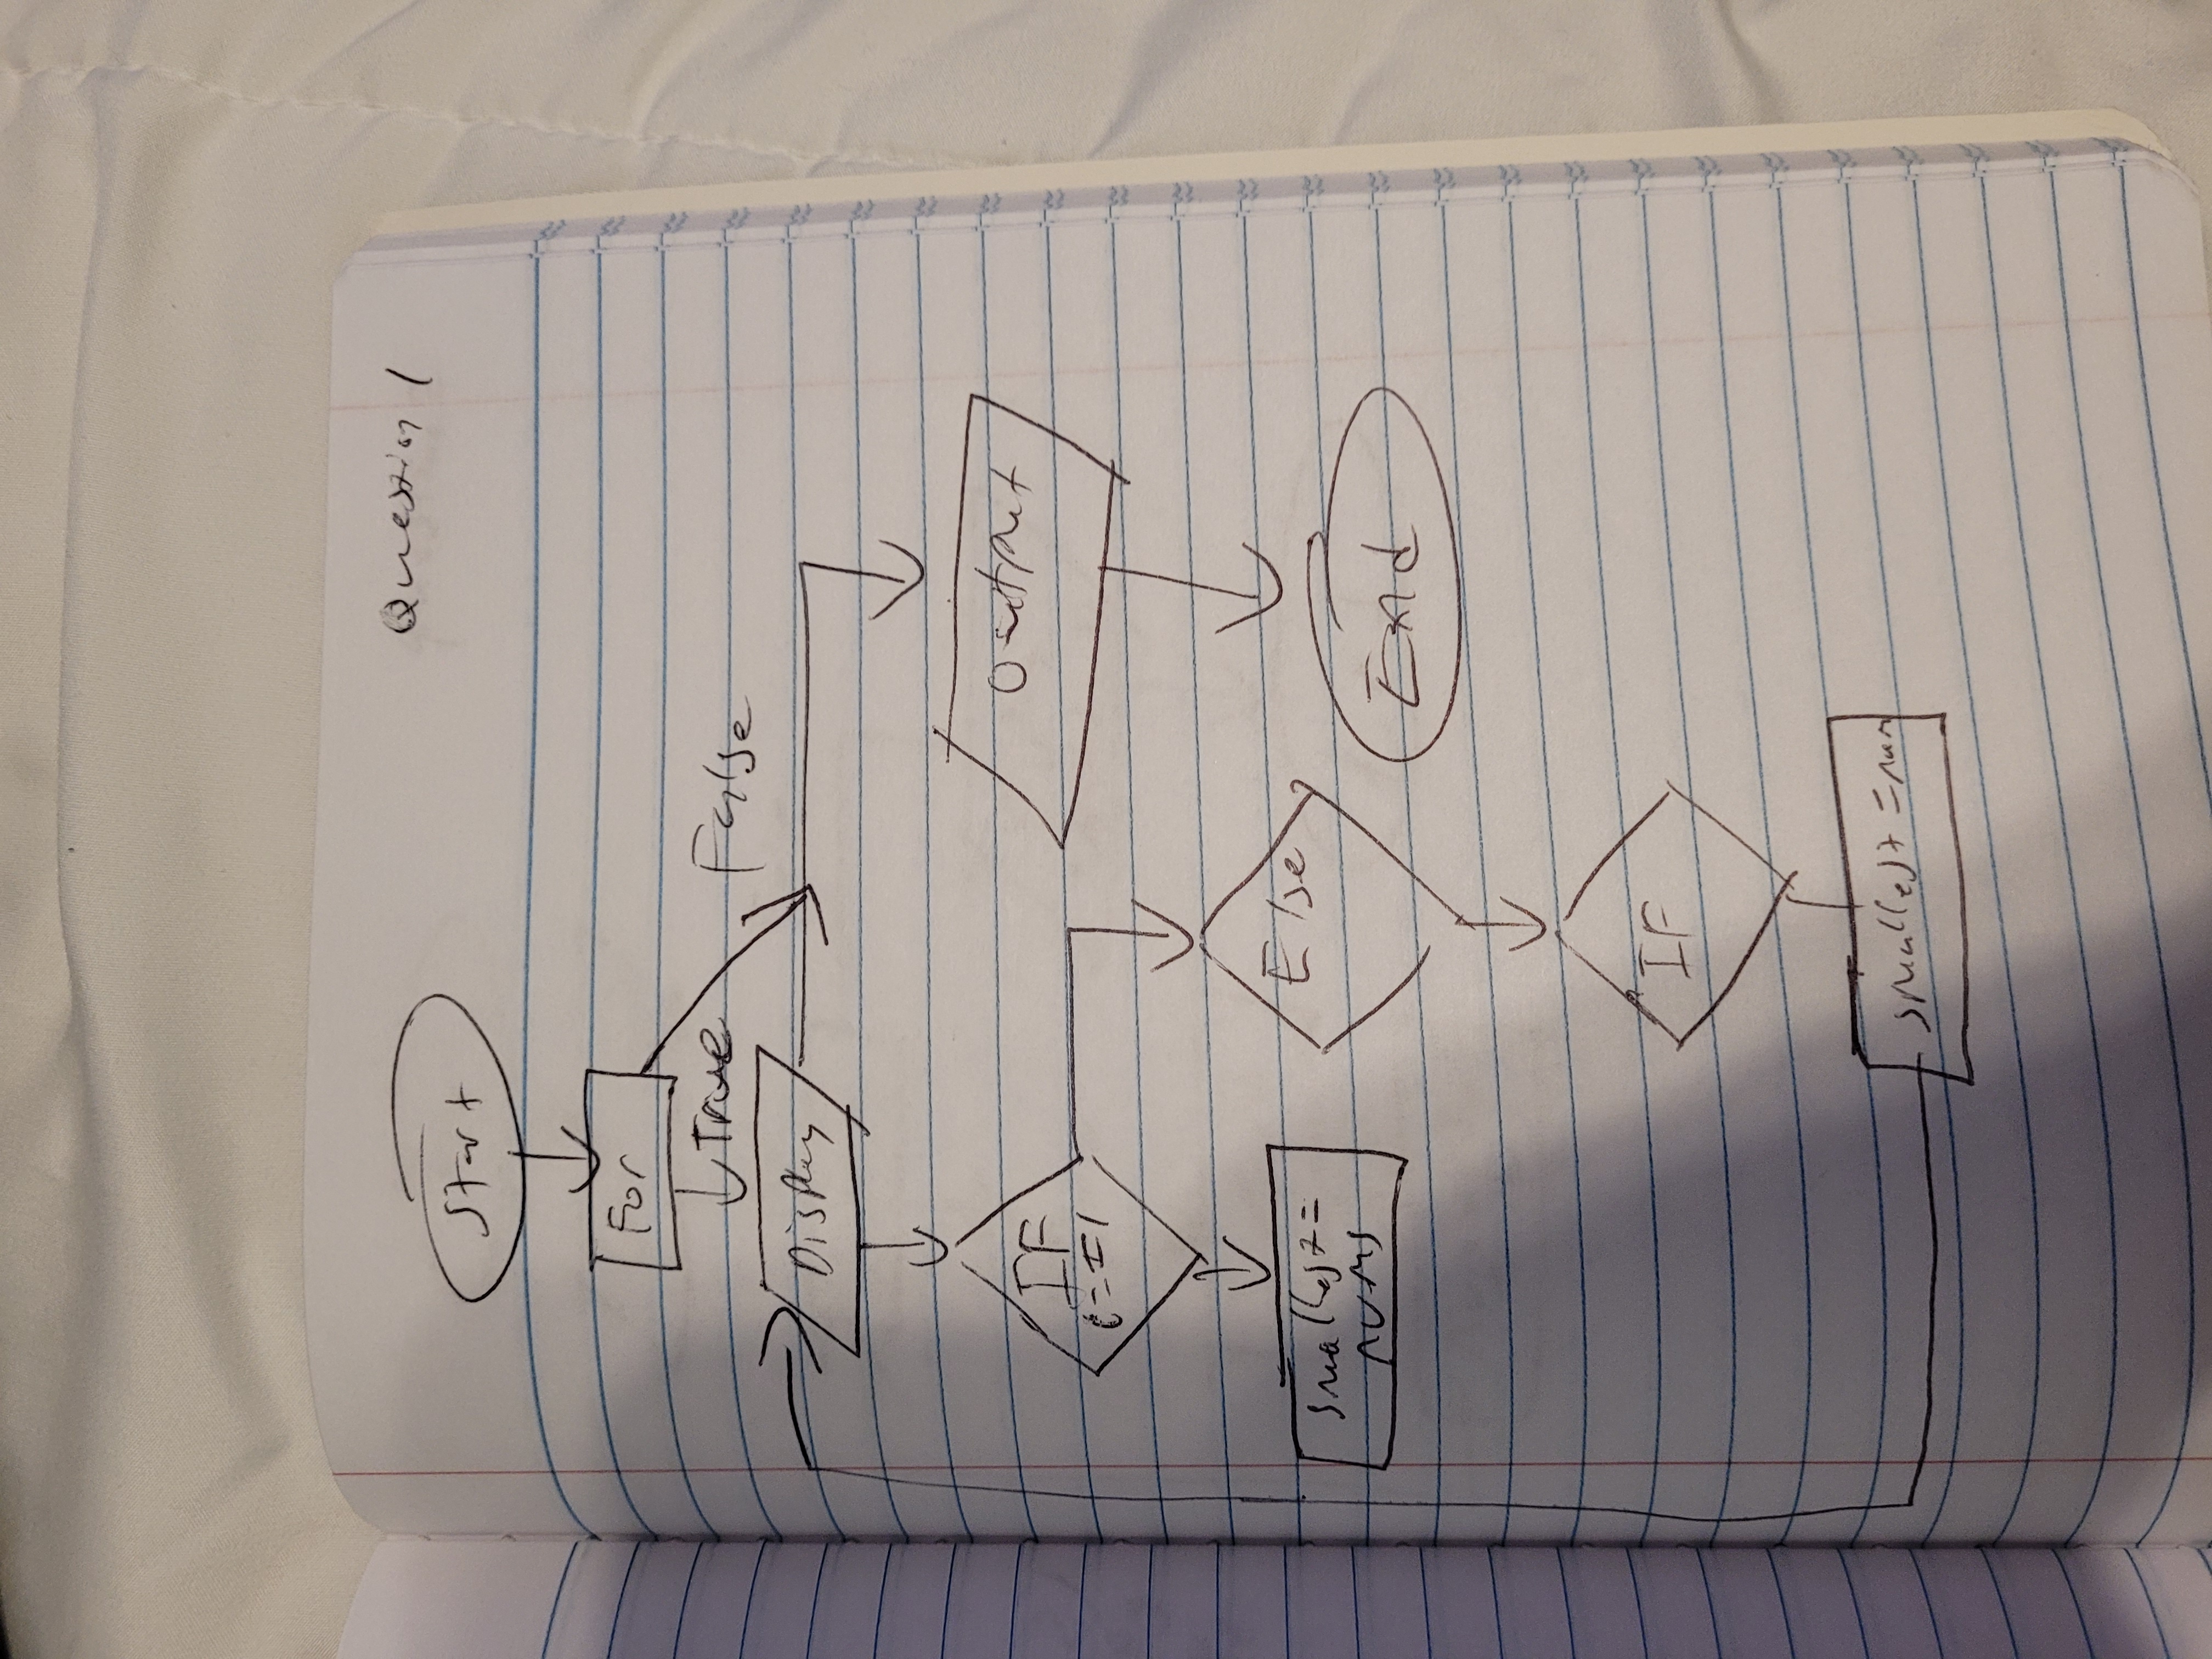 Question 1
Start
For
True
False
Display
IF
Output
Else
smallest =
nums
End
IF
smallest = num